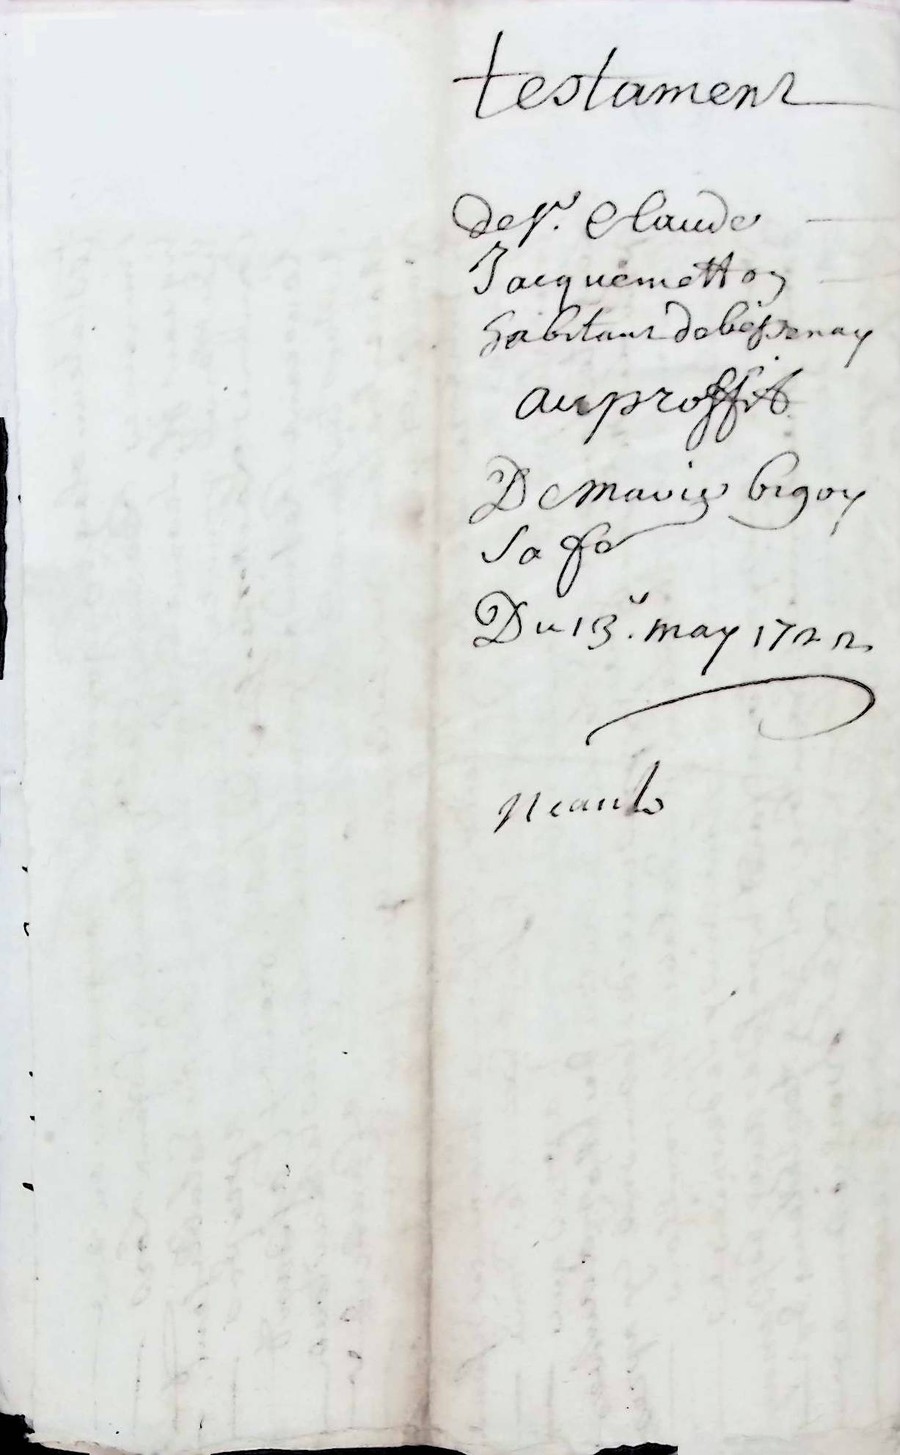 testament
de sr. Claude
Jacquemetton
habitant de bessenay
au proffit
De Marie bigoy
sa fe
Du 13e. may 1722
neant